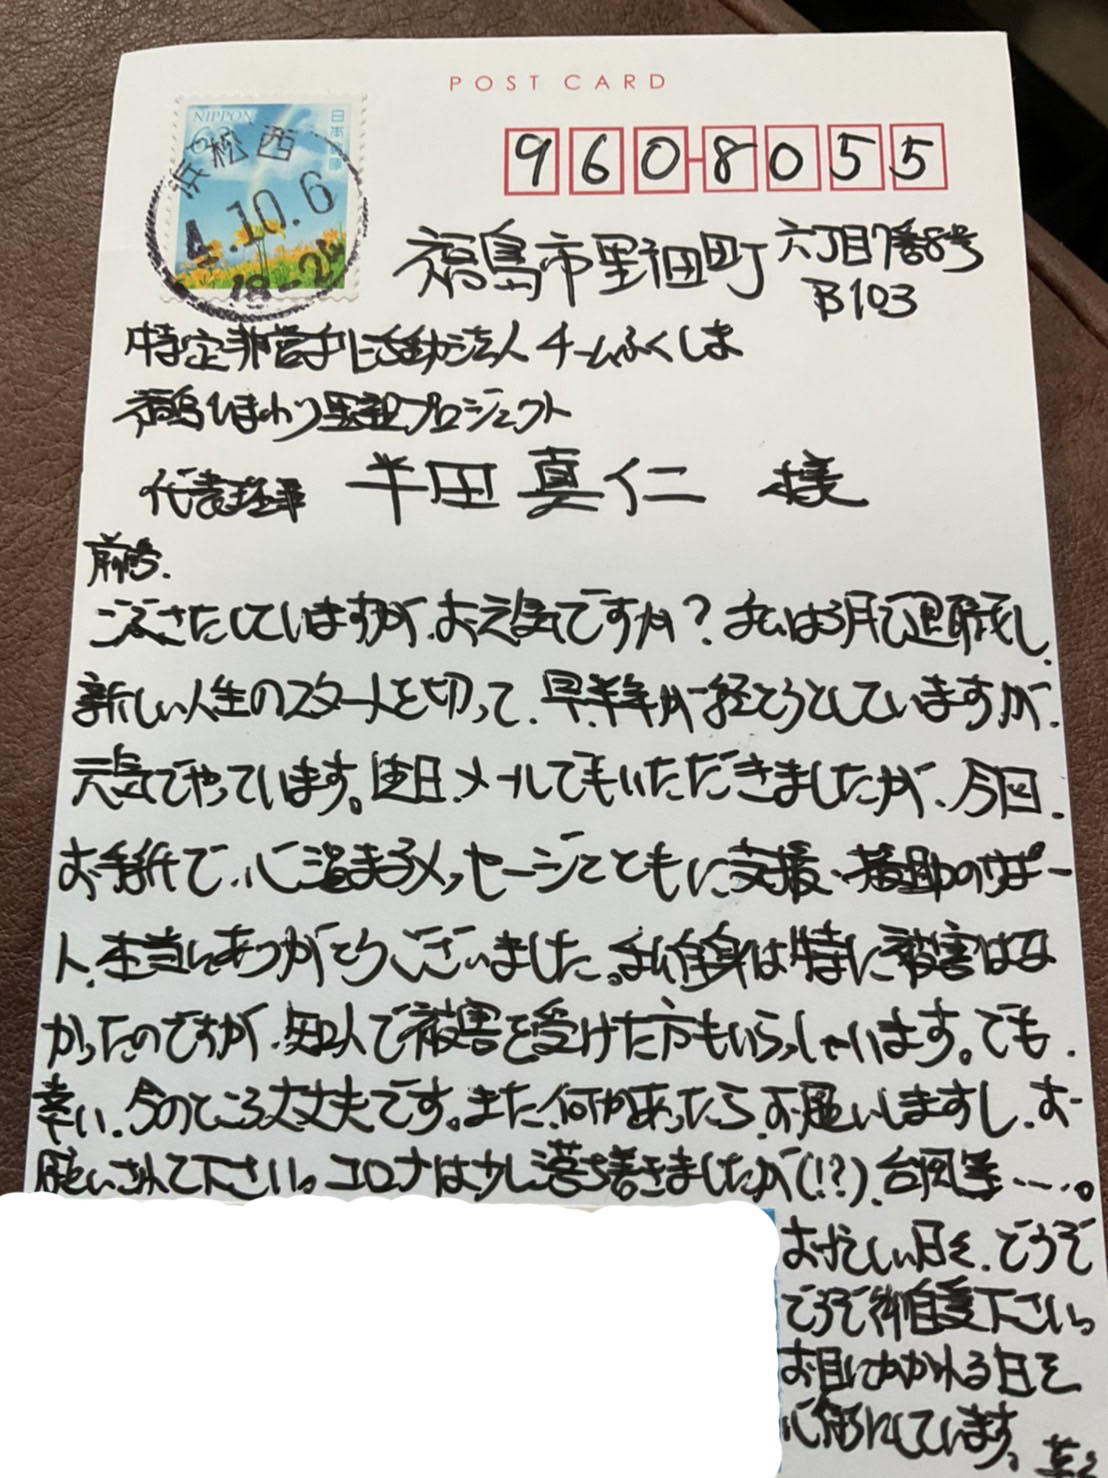 POST CARD
NIPPON
日本郵便
浜松西
4.10.6
18-24
960-8055
福島市野田町六丁目7番8号
B103
特定非営利活動法人チームふくしま
福島ひまわり里親プロジェクト
代表理事 半田真仁 様
前略.
ごぶさたしていますが、お元気ですか?私は3月で退職し、
新しい人生のスタートを切って、早、半年が経とうとしていますが、
元気でやっています。先日、メールでもいただきましたが、今回、
お手紙で、心温まるメッセージとともに支援・援助のサポー
ト、本当にありがとうございました。私自身は特に被害はな
かったのですが、知人で被害を受けた方もいらっしゃいます。でも、
幸い、今のところ大丈夫です。また、何かあったら、お願いしますし、お
願いされて下さい。コロナは少し落ち着きましたが(!?)、台風等……。
お忙しい日々、どうぞ
どうぞ御自愛下さい。
お目にかかれる日を
心待ちにしています。草々